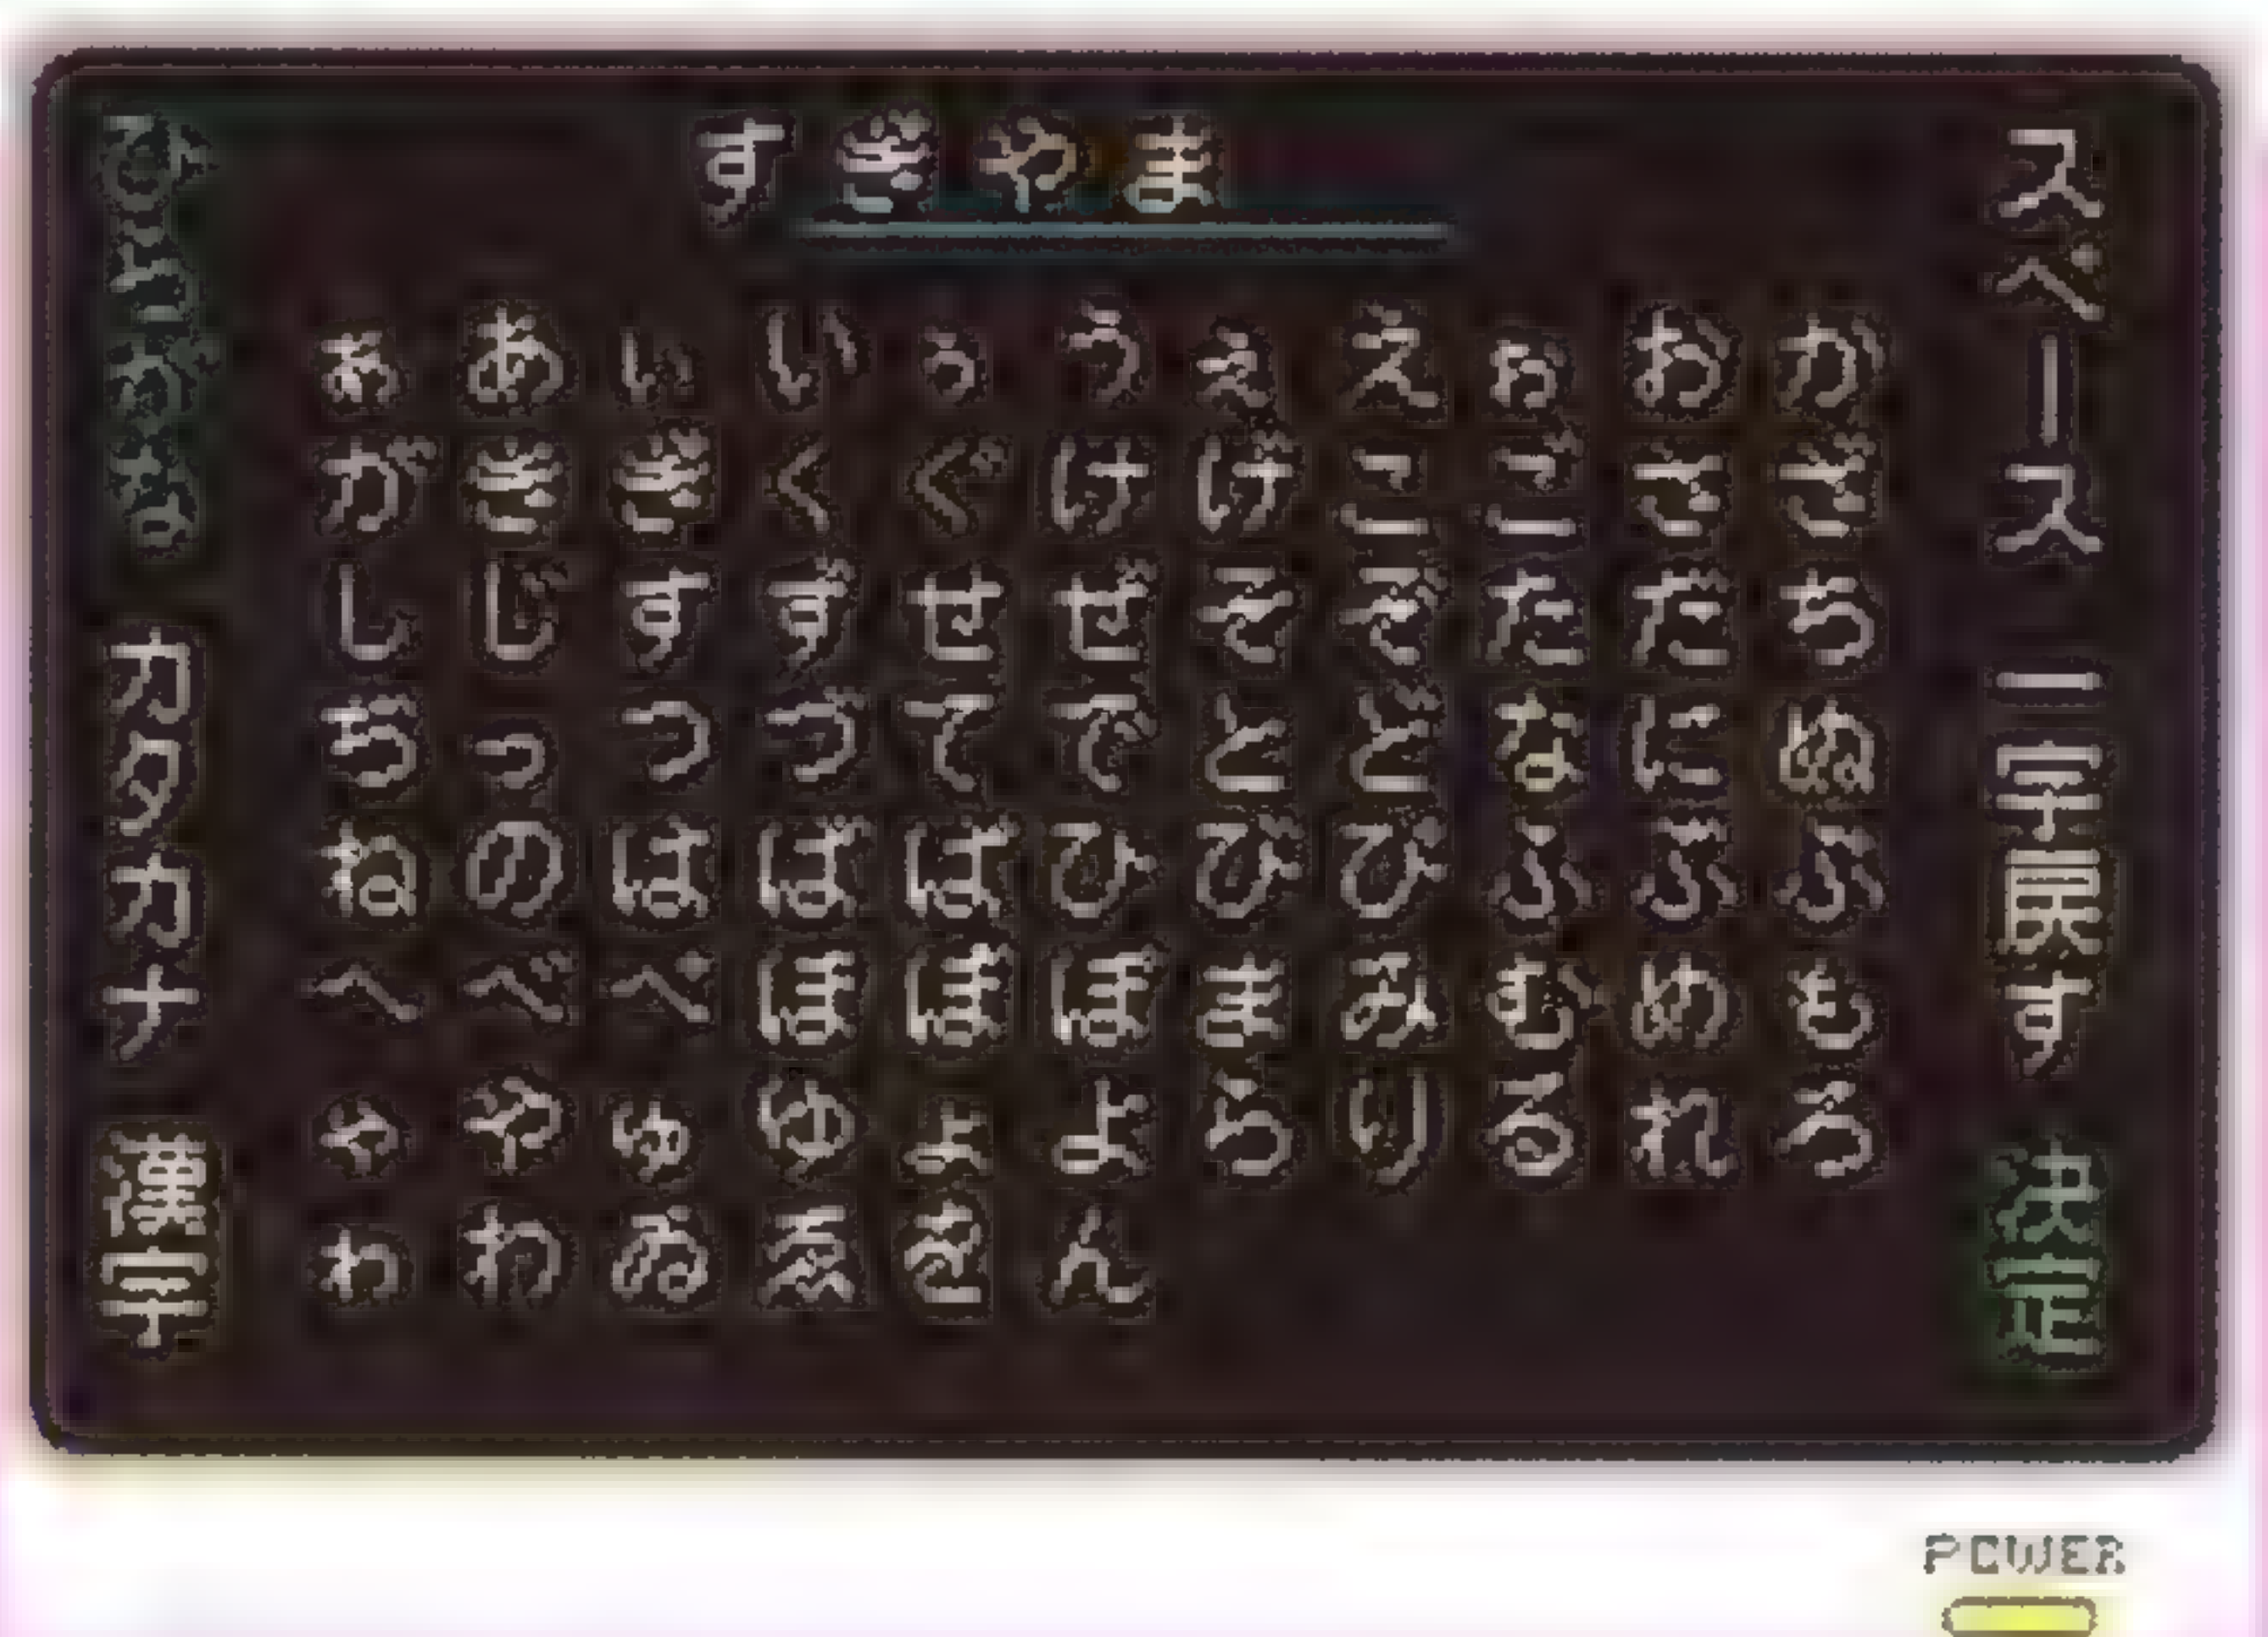 すぎやま
ひらがな
カタカナ
漢字
ぁあぃいぅうぇえぉおか
がきぎくぐけげこごさざ
しじすずせぜそぞただち
ぢっつづてでとどなにぬ
ねのはばぱひびぴふぶぷ
へべぺほぼぽまみむめも
ゃやゅゆょよらりるれろ
ゎわゐゑをん
スペース
一字戻す
決定
POWER